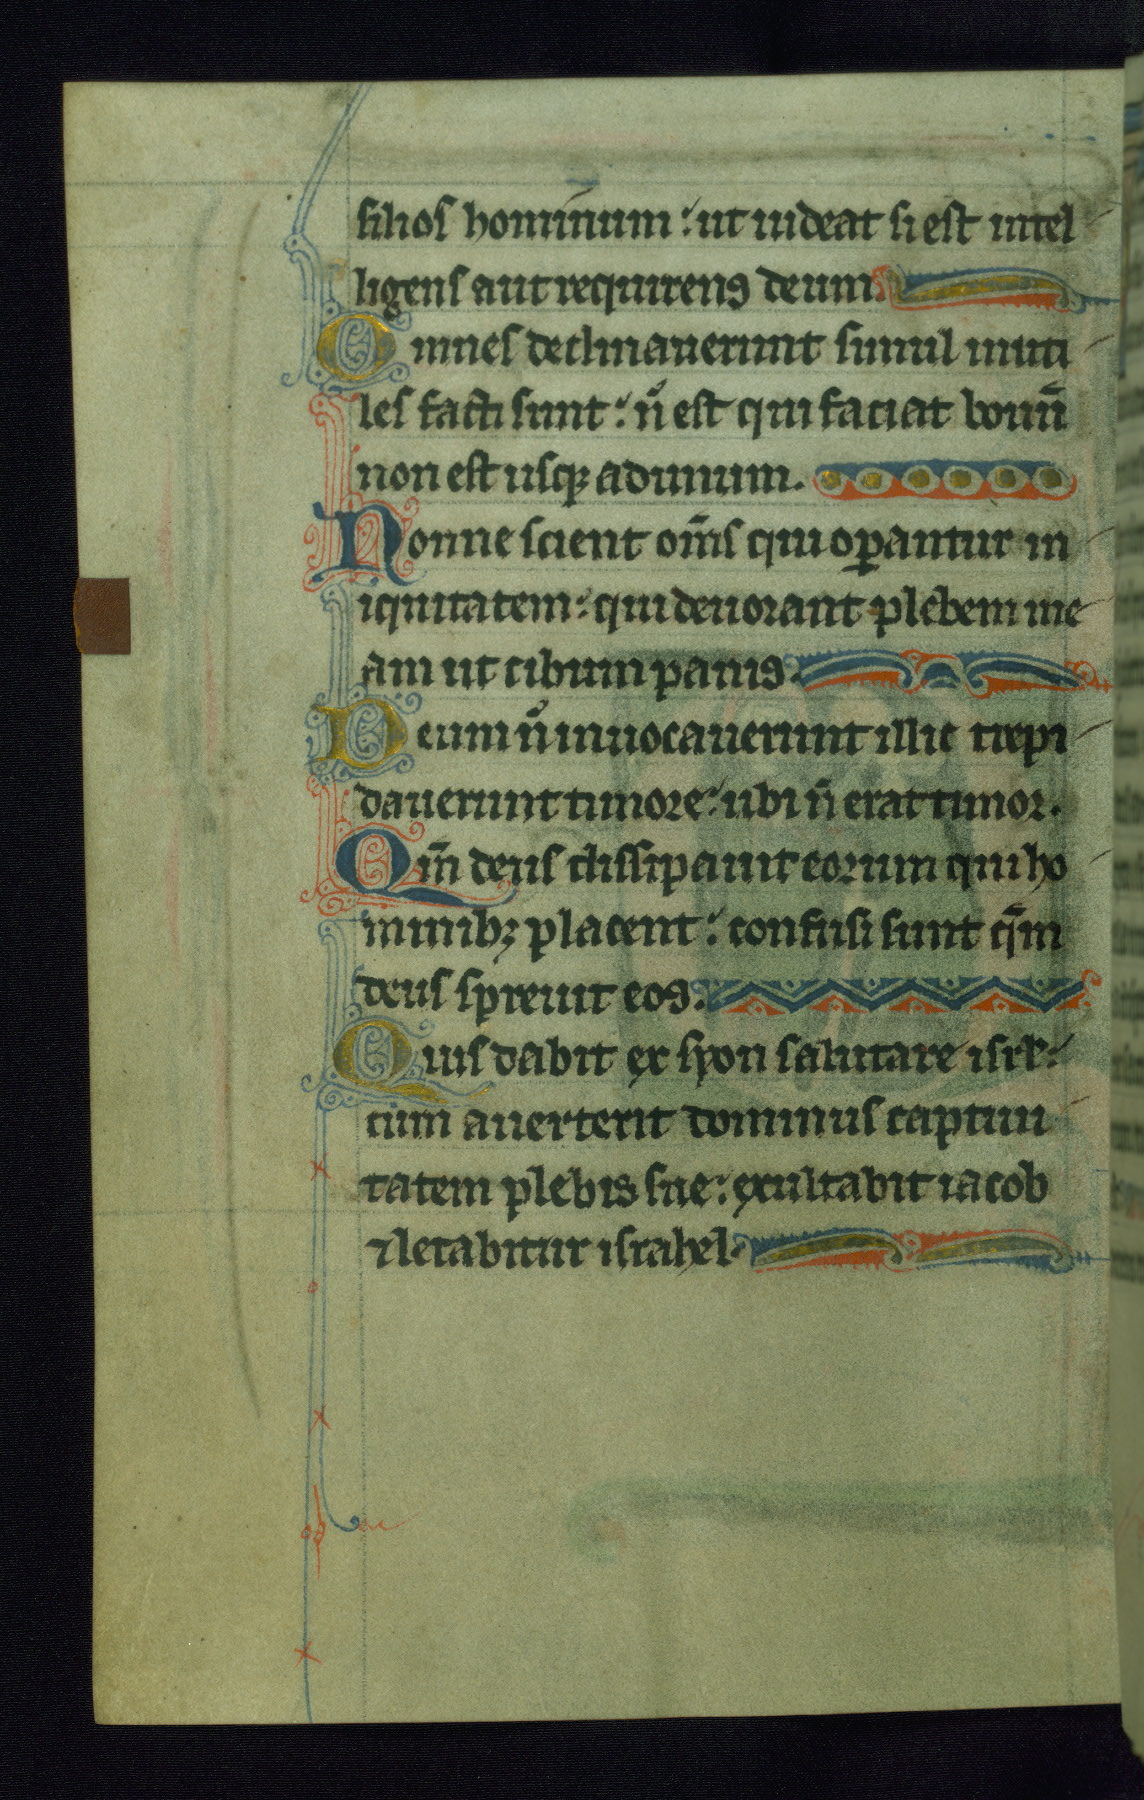 filios hominum: ut uideat si est intel
ligens aut requirens deum.
Omnes declinauerunt simul inuti
les facti sunt: n̄ est qui faciat bonū
non est usq; ad unum.
Nonne scient om̄s qui oꝑantur in
iquitatem: qui deuorant plebem me
am ut cibum panis.
Deum n̄ inuocauerunt illic trepi
dauerunt timore: ubi n̄ erat timor.
Qm̄ deus dissipauit eorum qui ho
minibꝫ placent: confusi sunt qm̄
deus spreuit eos.
Quis dabit ex syon salutare isrl':
cum auerterit dominus captiui
tatem plebis sue: exultabit iacob
⁊ letabitur israhel.